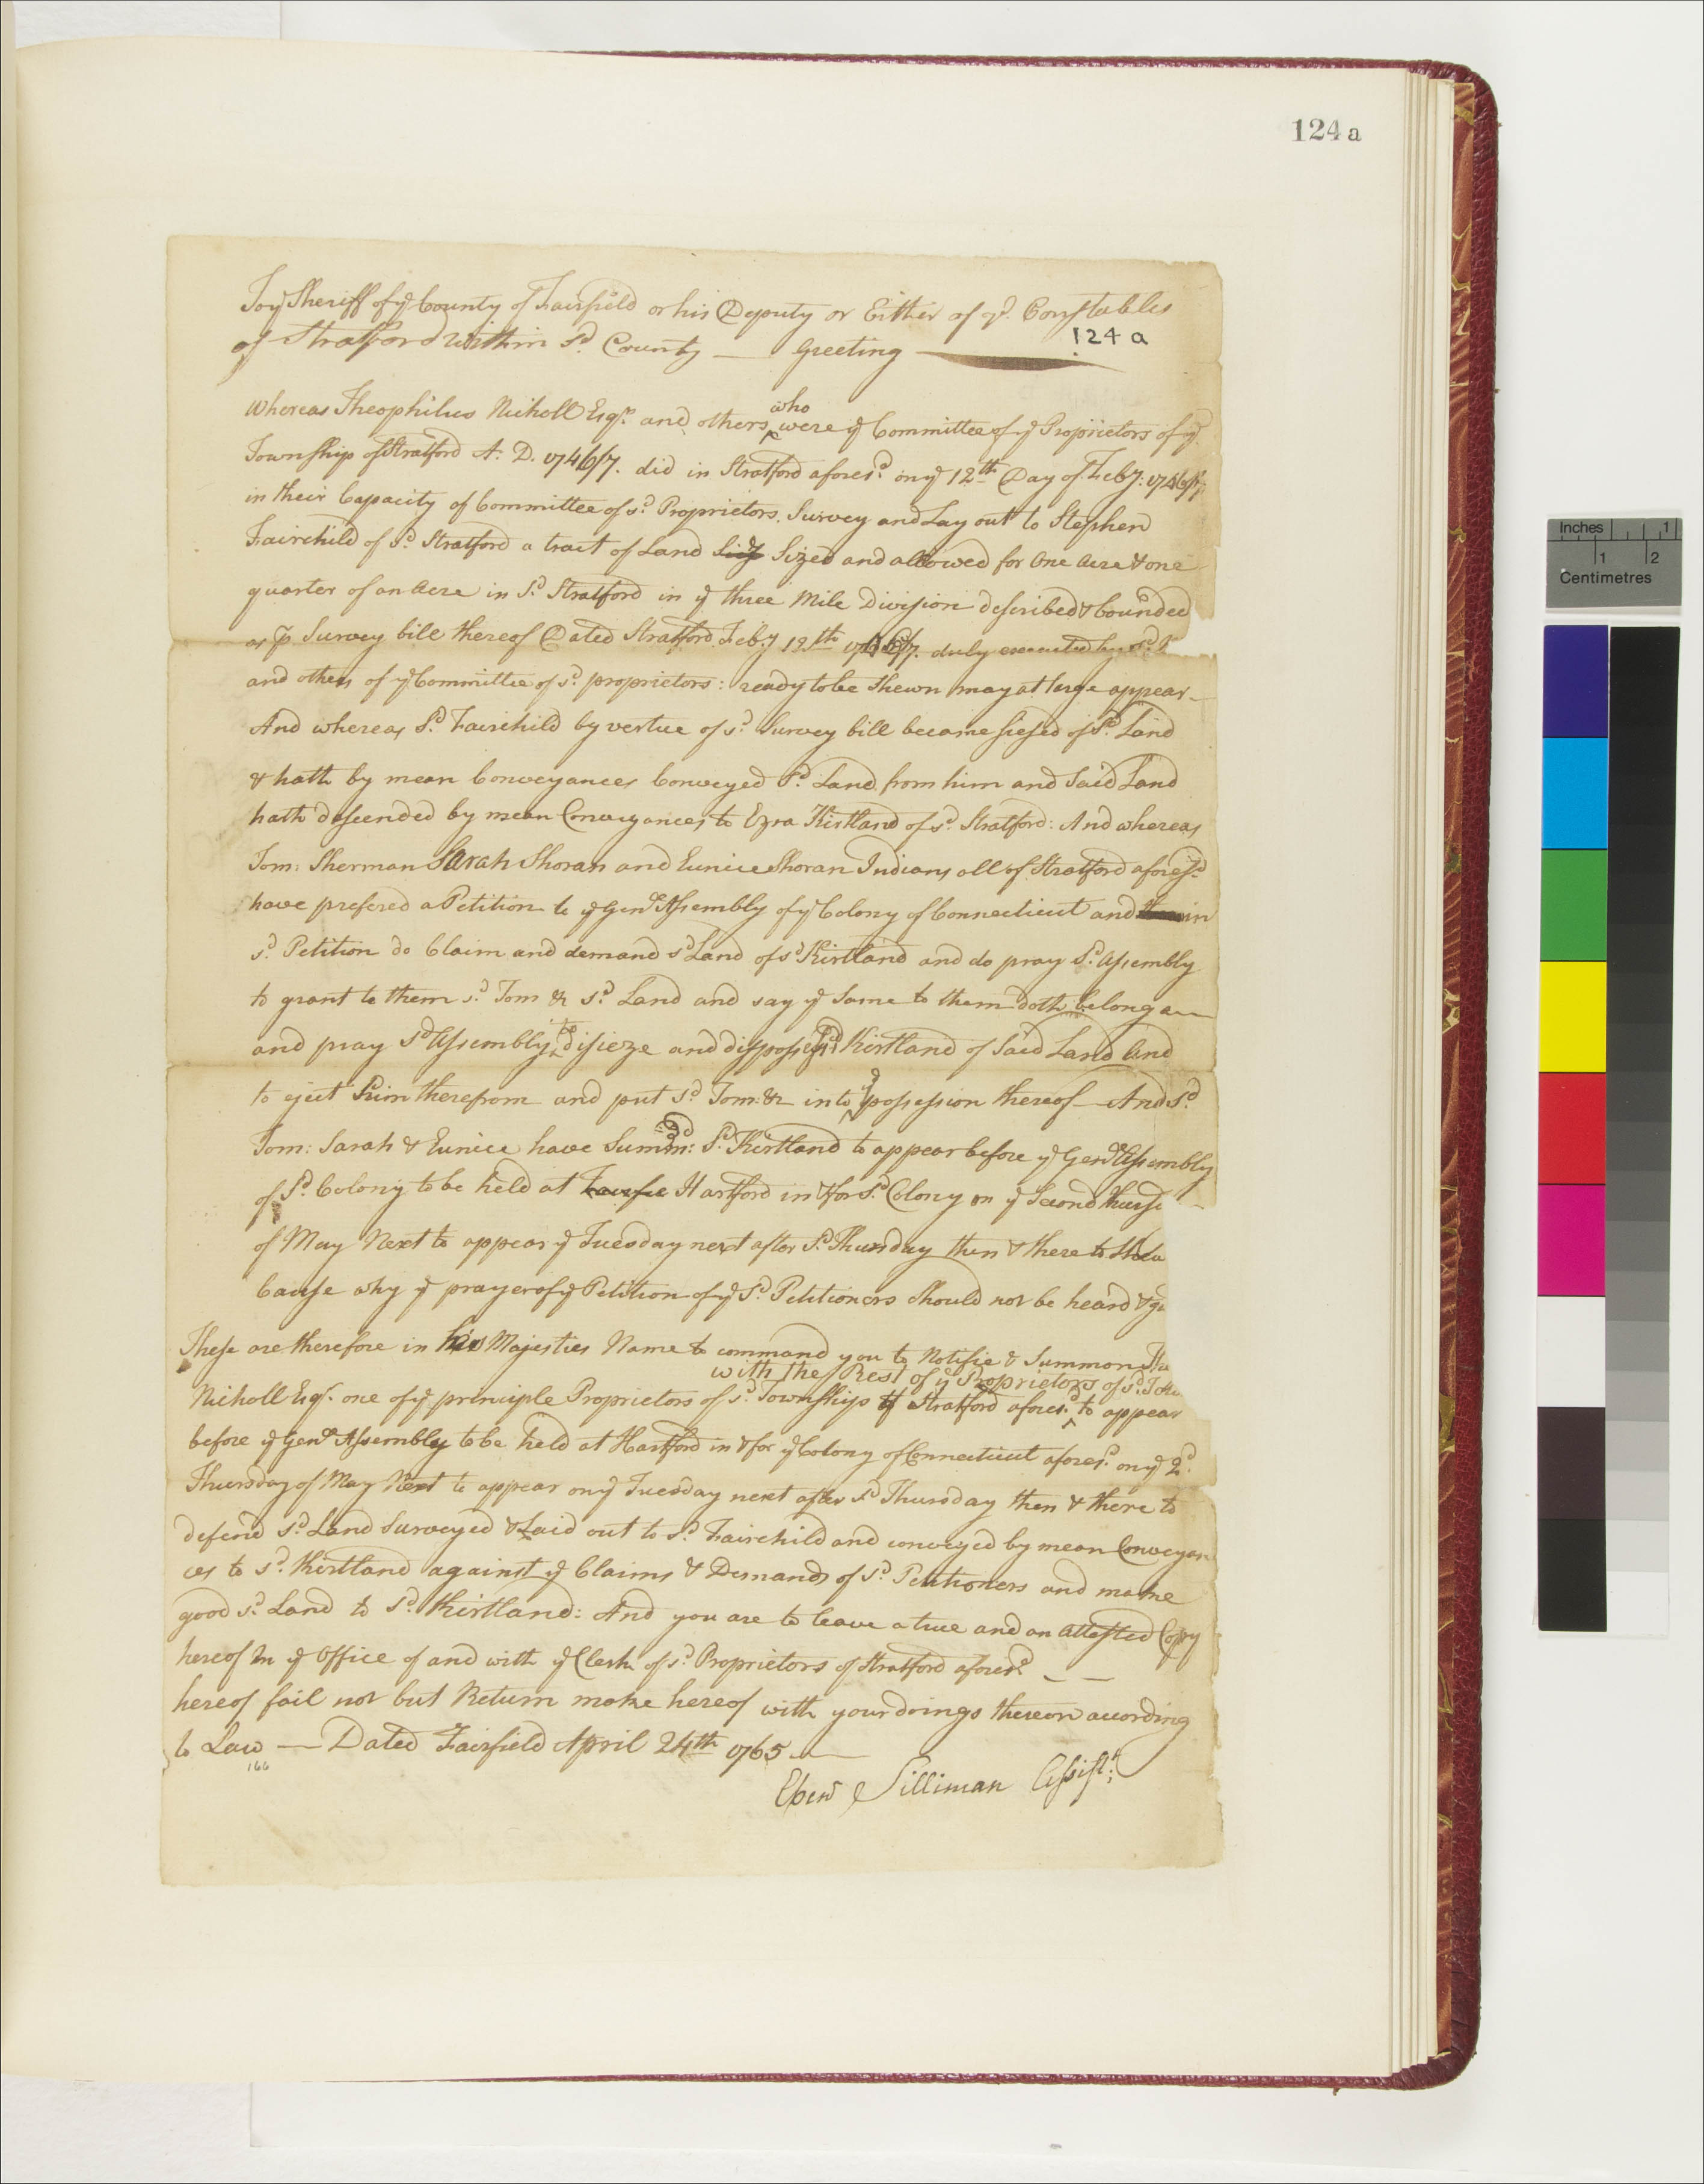 124 a
To yͤ Sheriff of yͤ County of Fairfield or his Deputy or Either of yͤ Constables
of Stratford within Sd. County — Greeting —
124 a
Whereas Theophilus Nicholl Esqr. and others who were yͤ Committee of yͤ Proprietors of yͤ
Township of Stratford A. D. 1746/7. did in Stratford aforesd. on yͤ 12th Day of Feby: 1746/7
in their Capacity of Committee of sd. Proprietors. Survey and Lay out to Stephen
Fairchild of sd. Stratford a tract of Land Sized and allowed for One Acre & one
quarter of an Acre in Sd. Stratford in yͤ three Mile Division described & bounded
as p Survey bill thereof Dated Stratford Feby 12th 1746/7. duly executed by sd.
and others of yͤ Committee of sd. proprietors: ready to be shewn may at large appear —
And whereas Sd. Fairchild by vertue of sd. Survey bill became siesed of Sd. Land
& hath by mean Conveyances Conveyed Sd. Land from him and Said Land
hath descended by mean Conveyances to Ezra Kirtland of sd. Stratford: And whereas
Tom: Sherman Sarah Shoran and Eunice Shoran Indians all of Stratford aforesd.
have prefered a Petition to yͤ Genll Assembly of yͤ Colony of Connecticut and in
sd. Petition do Claim and demand sd Land of sd Kirtland and do pray Sd. Assembly
to grant to them sd. Tom &c sd. Land and say yͤ Same to them doth belong
and pray sd Assembly to disieze and disposess sd Kirtland of Said Land And
to eject him therefrom and put sd Tom: &c into yͤ possession thereof — And Sd.
Tom: Sarah & Eunice have Summd: Sd. Kirtland to appear before yͤ Genll Assembly
of Sd. Colony to be held at Hartford in & for Sd. Colony on yͤ Second thursd
of May Next to appear yͤ Tuesday next after Sd. Thursday then & there to Shew
Cause why yͤ prayer of yͤ Petition of yͤ Sd. Petitioners should not be heard & g
These are therefore in his Majesties Name to command you to Notifie & Summon
with the Rest of yͤ Proprietors of sd.
Nicholl Esqr. one of yͤ principle Proprietors of sd. Township of Stratford aforesd. to appear
before yͤ Genll Assembly to be held at Hartford in & for yͤ Colony of Connecticut aforesd. on yͤ 2d.
Thursday of May Next to appear on yͤ Tuesday next after sd Thursday then & there to
defend sd. Land Surveyed & Laid out to sd. Fairchild and conveyed by mean Conveyan
ces to sd. Kirtland against yͤ Claims & Demands of sd. Petitioners and make
good sd. Land to sd. Kirtland: And you are to leave a true and an Attested Copy
hereof In yͤ Office of and with yͤ Clerk of sd. Proprietors of Stratford aforesd. — —
hereof fail not but Return make hereof with your doings thereon according
to Law — Dated Fairfield April 24th 1765 —
166
Ebenr Silliman Assist: